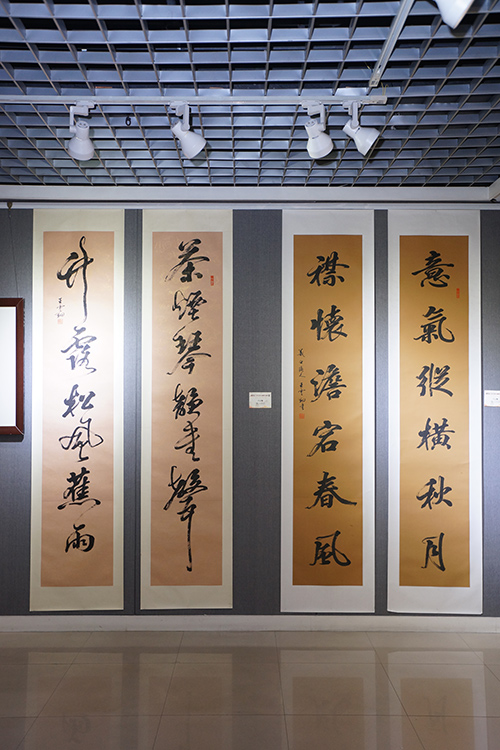 意氣縱橫秋月
襟懷澹宕春風
茶煙琴韻書聲
竹露松風蕉雨